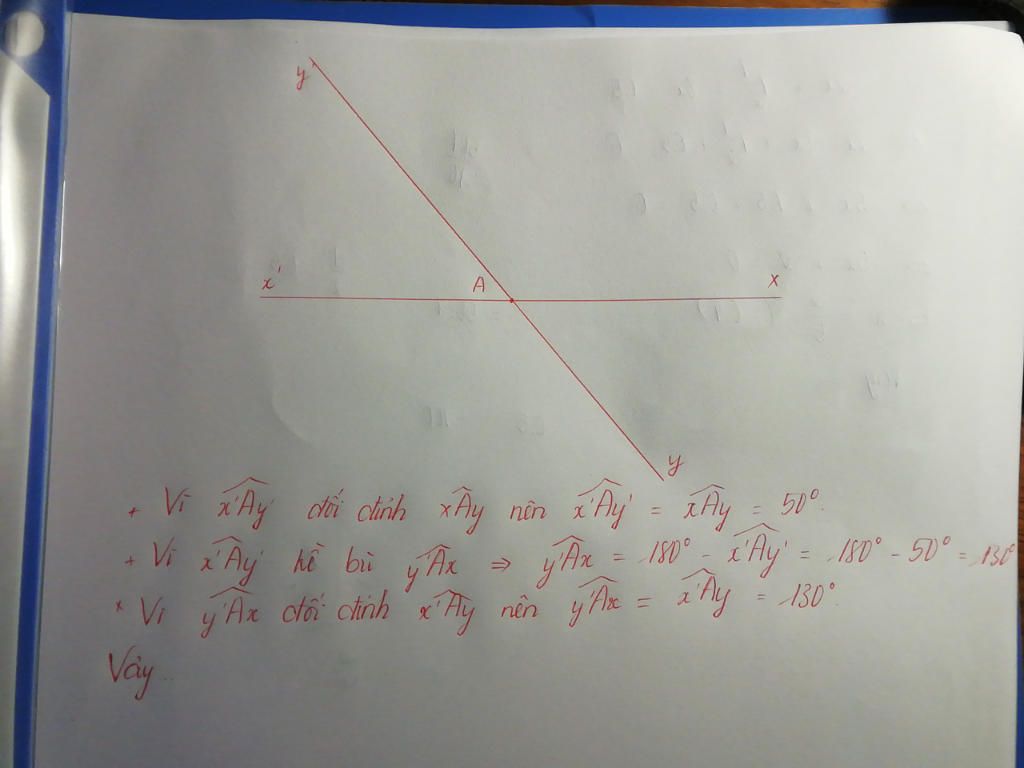 y
x'
A
x
y
+ Vì x'Ây' đối đỉnh xÂy nên x'Ây' = xÂy = 50°.
+ Vì x'Ây' kề bù y'Âx ⇒ y'Âx = 180° - x'Ây' = 180° - 50° = 130°
* Vì y'Âx đối đỉnh x'Ây nên y'Âx = x'Ây = 130°.
Vậy...